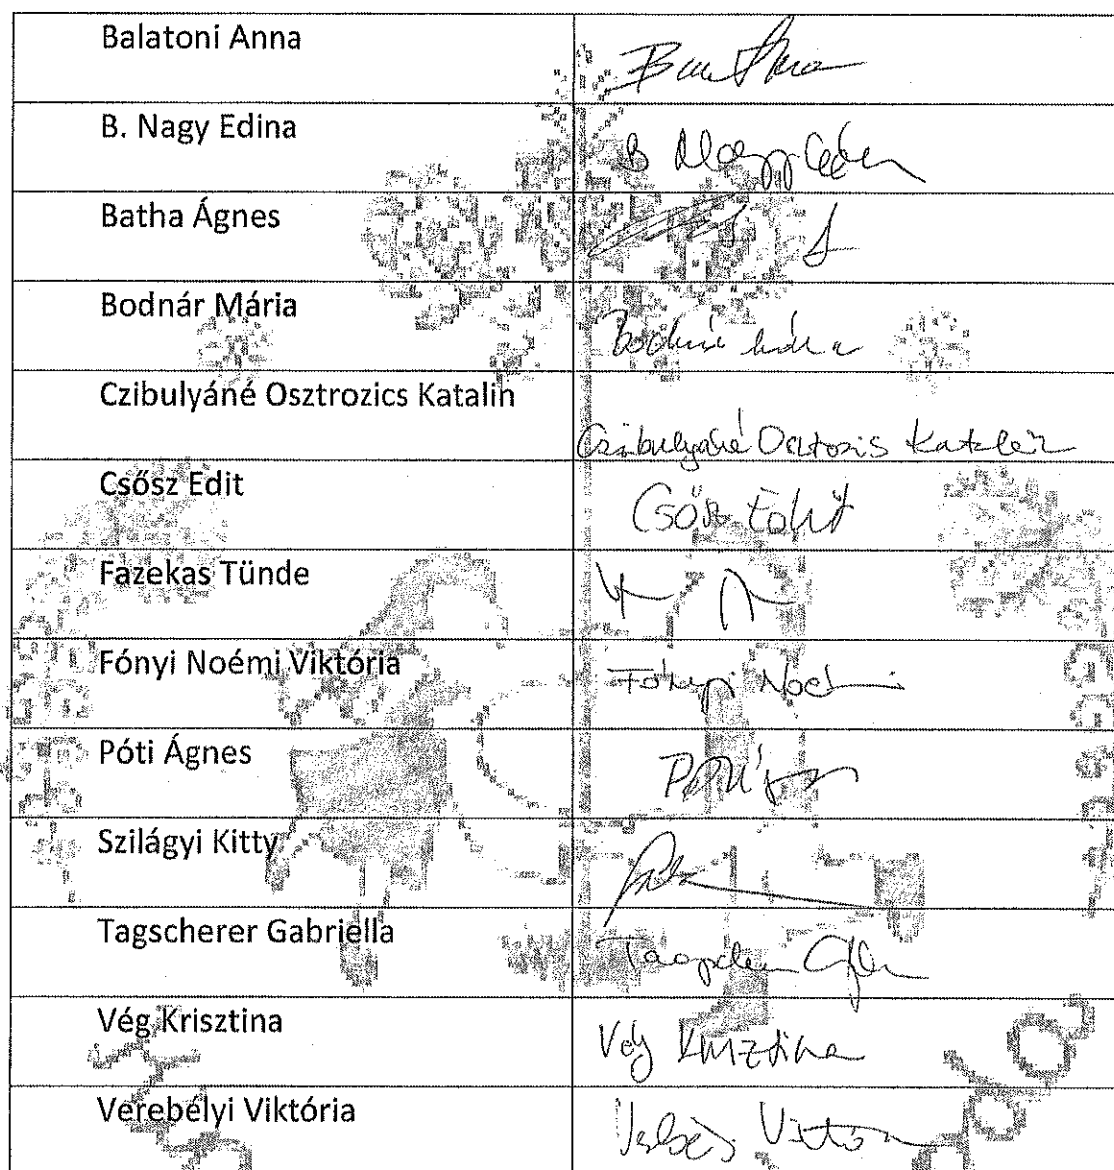 Balatoni Anna
B. Nagy Edina
B Nagy Edina
Batha Ágnes
Bodnár Mária
Bodnár Mária
Czibulyáné Osztrozics Katalin
Czibulyáné Osztrozis Katalin
Csősz Edit
Csősz Edit
Fazekas Tünde
Fónyi Noémi Viktória
Fónyi Noémi
Póti Ágnes
Szilágyi Kitty
Tagscherer Gabriella
Vég Krisztina
Vég Krisztina
Verebélyi Viktória